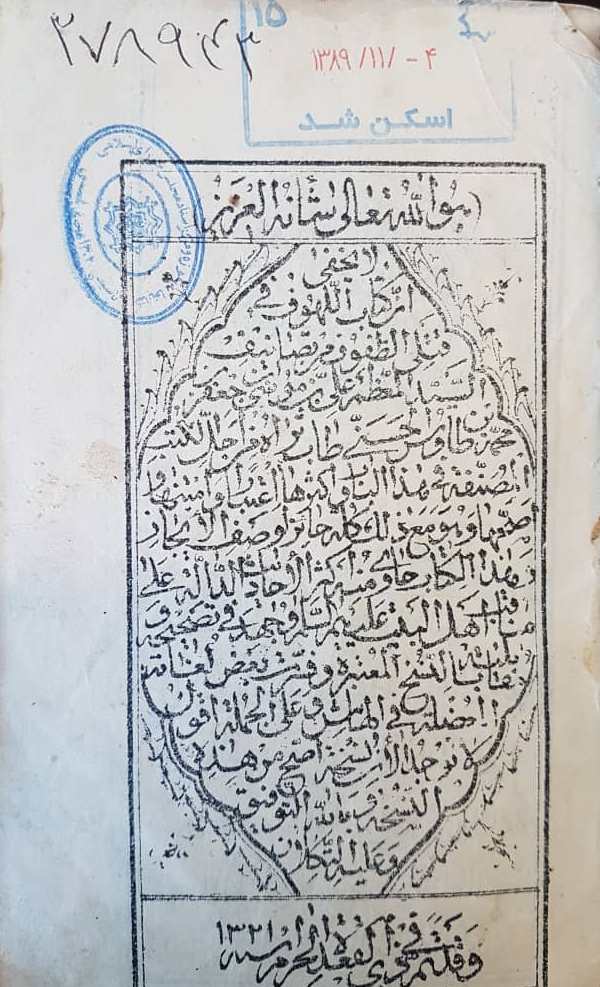 ۲۷۸۹۴۳
۱۵
۱۳۸۹/۱۱/-۴
اسکن شد
(هو الله تعالى شأنه العزيز)
لا يخفى
ان كتاب اللهوف في
قتلى الطفوف من تصانيف
السيد المعظم علي بن موسى بن جعفر بن
محمد بن طاوس الحسني طاب ثراه من اجل الكتب
المصنفة في هذا الباب واكثرها اعتبارا وامتنها و
اصحها وهو مع ذلك كله حائز لوصف الايجاز
وهذا الكتاب حاوي من اكثر الاحاديث الدالة على
مناقب اهل البيت عليهم السلام وجهد في تصحيحه و
مقابلته بالنسخ المعتبرة وفسرت بعض لغاته
المعضلة في الهامش وعلى الجملة اقول
لا توجد الان نسخة اصح من هذه
النسخة وبالله التوفيق
وعليه التكلان
وقد تم في ذي القعدة الحرام سنة ۱۳۲۱